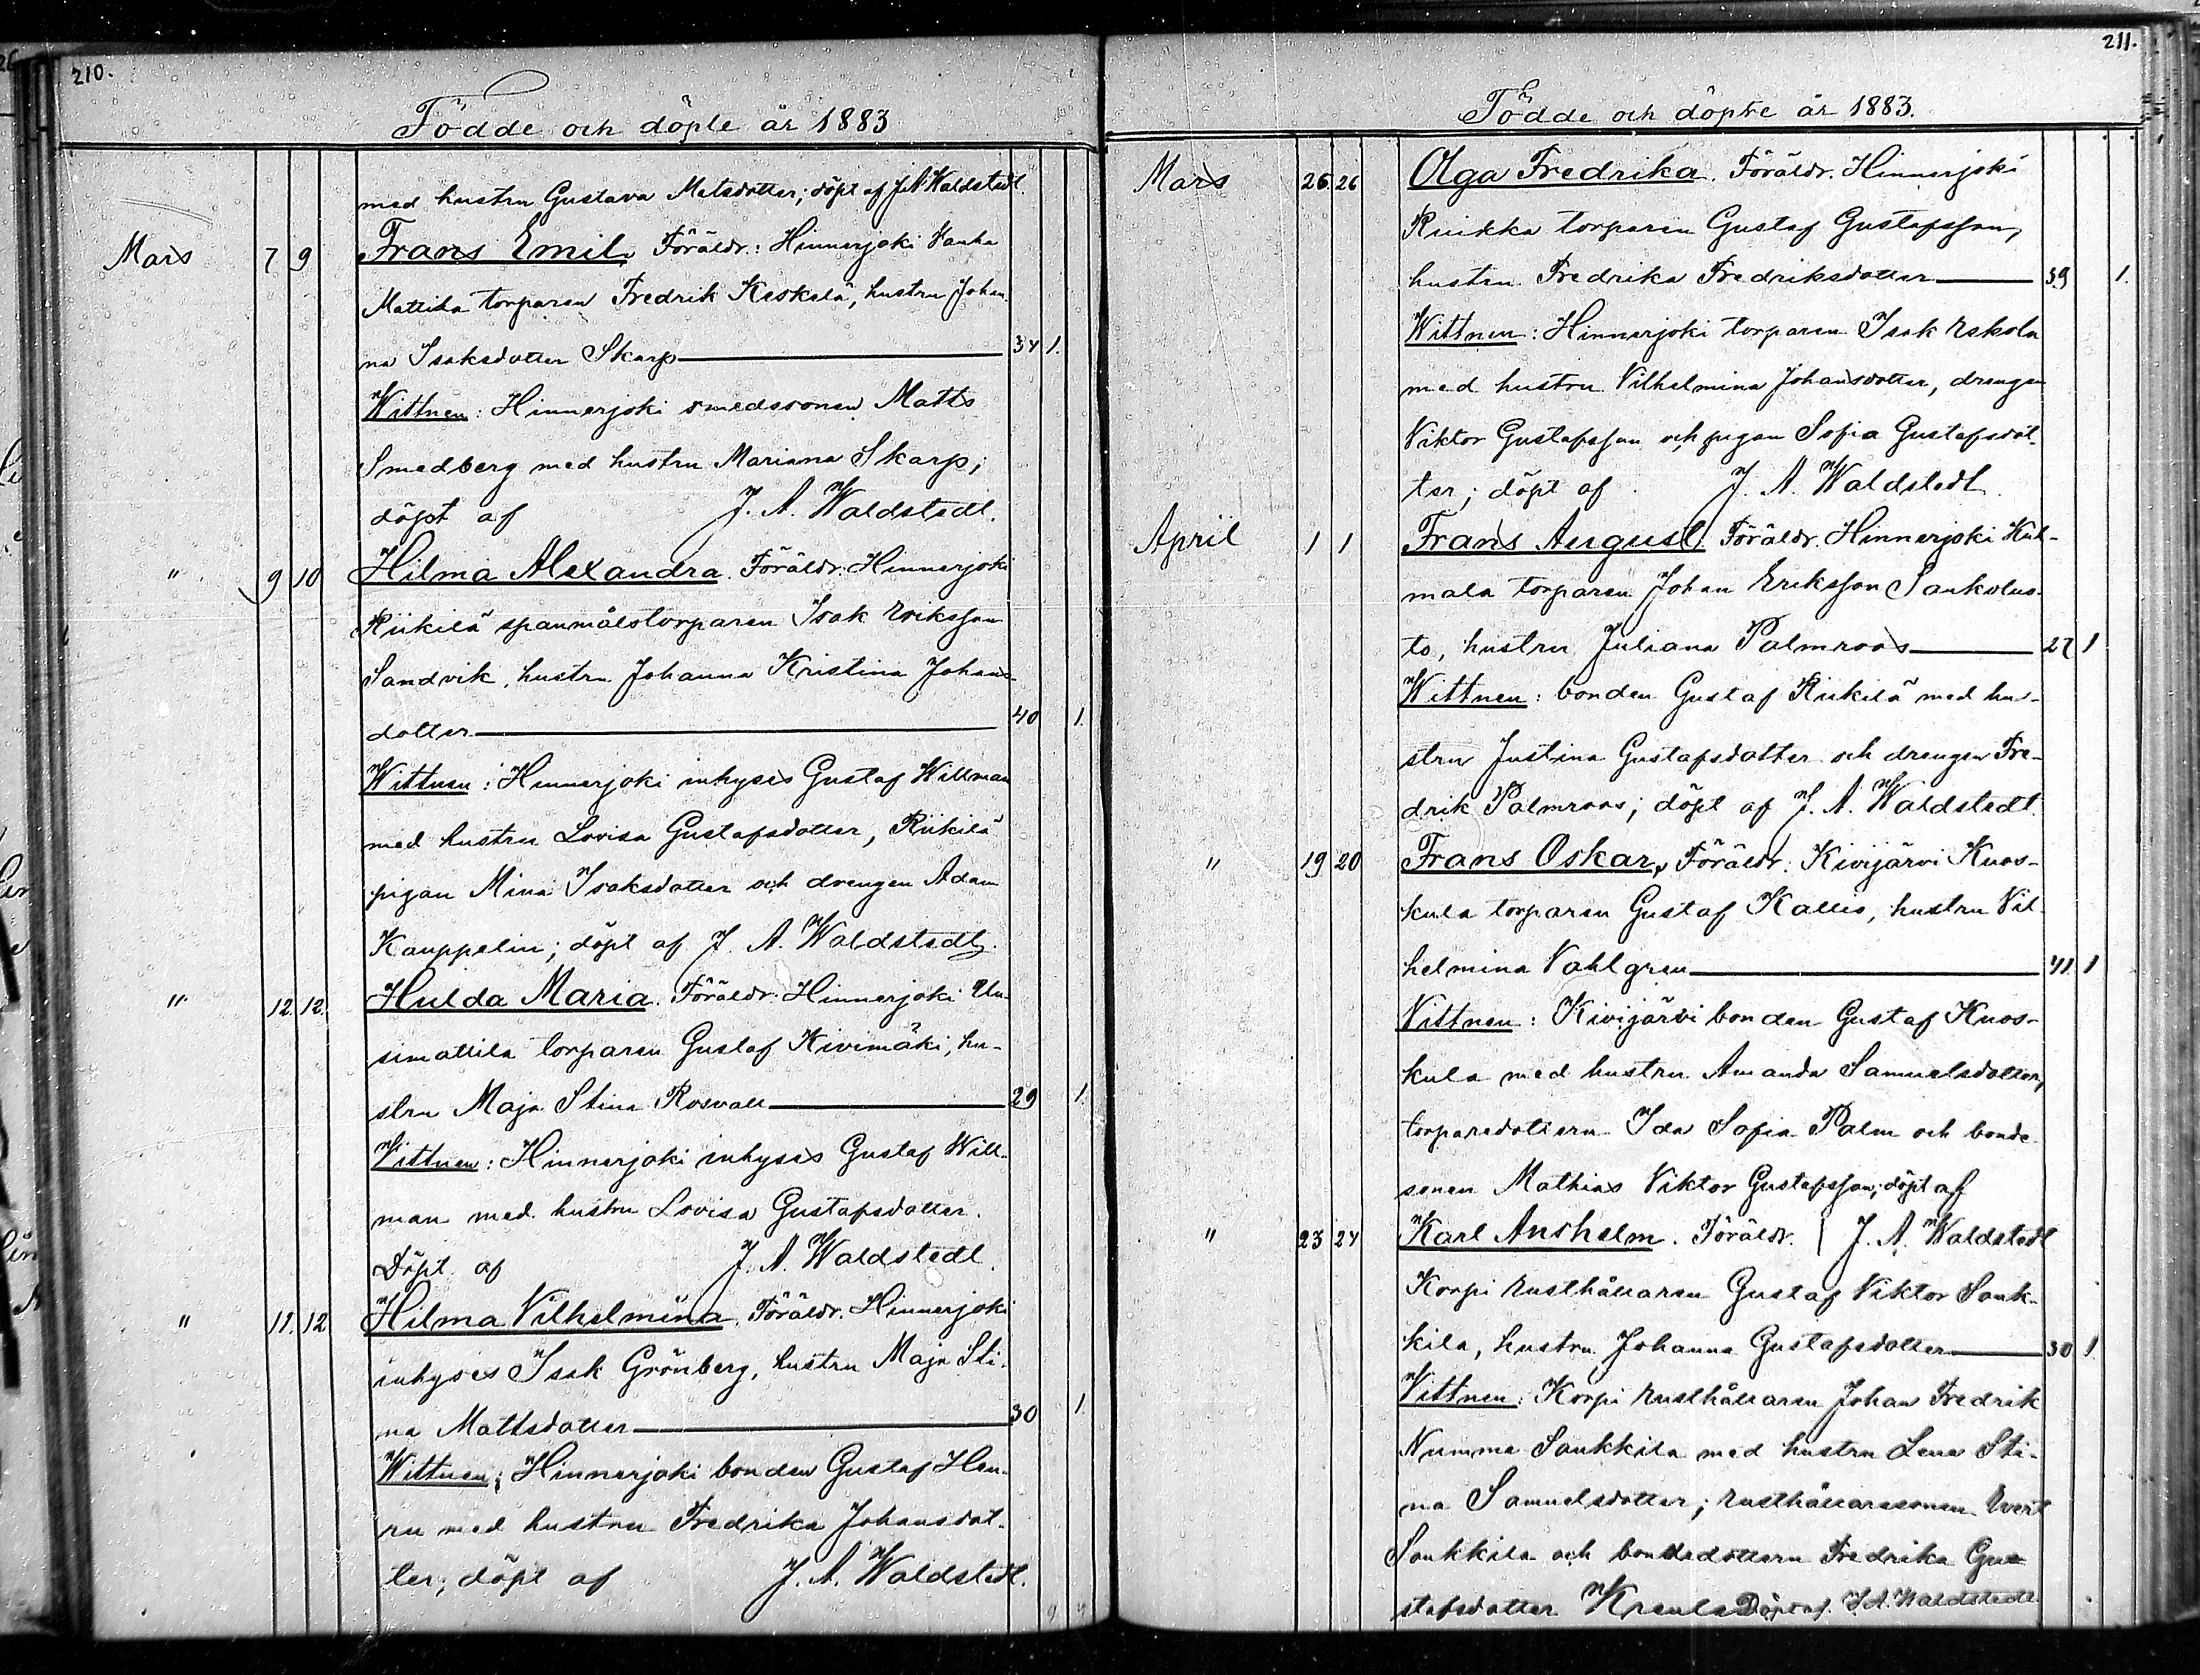 210.
Födde och döpte år 1883
med hustru Gustava Matsdotter; döpt af J A Waldstedt.
Mars 7 9 Frans Emil. Föräldr.: Hinnerjoki Vanha
Mattila torparen Fredrik Keskilä, hustru Johan
na Isaksdotter Skarp 34 1.
Wittnen: Hinnerjoki smedssonen Matts
Smedberg med hustru Mariana Skarp;
döpt af J. A. Waldstedt.
" 9 10 Hilma Alexandra. Föräldr. Hinnerjoki
Riikilä spanmålstorparen Isak Eriksson
Sandvik, hustru Johanna Kristina Johans-
dotter 40 1.
Wittnen: Hinnerjoki inhyses Gustaf Willman
med hustru Lovisa Gustafsdotter, Riikilä
pigan Mina Isaksdotter och drengen Adam
Kauppelin; döpt af J. A. Waldstedt.
" 12. 12. Hulda Maria. Föräldr. Hinnerjoki Uu-
simattila torparen Gustaf Kivimäki, hu-
stru Maja Stina Rosvall 29 1.
Vittnen: Hinnerjoki inhyses Gustaf Will-
man med hustru Lovisa Gustafsdotter.
Döpt af J. A. Waldstedt.
" 11. 12 Hilma Vilhelmina. Föräldr. Hinnerjoki
inhyses Isak Grönberg, hustru Maja Sti-
na Mattsdotter 30 1.
Wittnen: Hinnerjoki bonden Gustaf Hen-
ru med hustru Fredrika Johansdot-
ter; döpt af J. A. Waldstedt.
211.
Födde och döpte år 1883.
Mars 26. 26 Olga Fredrika. Föräldr. Hinnerjoki
torparen Gustaf Gustafsson,
hustru Fredrika Fredriksdotter 39 1.
Wittnen: Hinnerjoki torparen Isak Eskola
med hustru Vilhelmina Johansdotter, drengen
Viktor Gustafsson och pigan Sofia Gustafsdot-
ter; döpt af J. A. Waldstedt.
April 1 1 Frans August. Föräldr. Hinnerjoki Kul-
mala torparen Johan Eriksson Sankolus-
to, hustru Juliana Palmroos 27 1
Wittnen: bonden Gustaf Riikilä med hu-
stru Justina Gustafsdotter och drengen Fre-
drik Palmroos; döpt af J. A. Waldstedt.
" 19 20 Frans Oskar, Föräldr. Kivijärvi Knos-
kula torparen Gustaf Kallis, hustru Vil-
helmina Vahlgren 41. 1
Vittnen: Kivijärvi bonden Gustaf Knos-
kula med hustru Amanda Samuelsdotter,
torparedottern Ida Sofia Palm och bonde
sonen Mathias Viktor Gustafsson; döpt af
" 23 24 Karl Anshelm. Föräldr. J. A. Waldstedt
Korpi rusthållaren Gustaf Viktor Sauk-
kila, hustru Johanna Gustafsdotter 30 1.
Vittnen: Korpi rusthållaren Johan Fredrik
Numma Saukkila med hustru Lena Sti-
na Samuelsdotter; rusthållaresonen Evert
Saukkila och bondedottern Fredrika Gu-
stafsdotter Döpt af J. A. Waldstedt